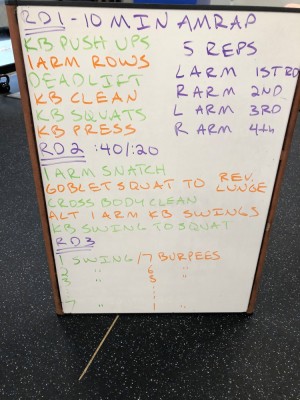 RD1 - 10 MIN AMRAP
KB PUSH UPS
1 ARM ROWS
DEADLIFT
KB CLEAN
KB SQUATS
KB PRESS
5 REPS
L ARM 1ST RD
R ARM 2ND
L ARM 3RD
R ARM 4th
RD2 :40/:20
1 ARM SNATCH
GOBLET SQUAT TO REV. LUNGE
CROSS BODY CLEAN
ALT 1 ARM KB SWINGS
KB SWING TO SQUAT
RD3
1 SWING/7 BURPEES
2 " 6 "
3 " 5 "
: :
7 " 1 "